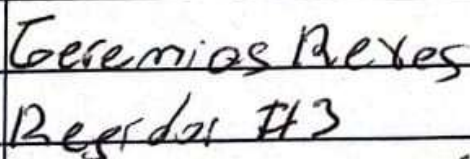 Geremias Reyes
Regidor #3